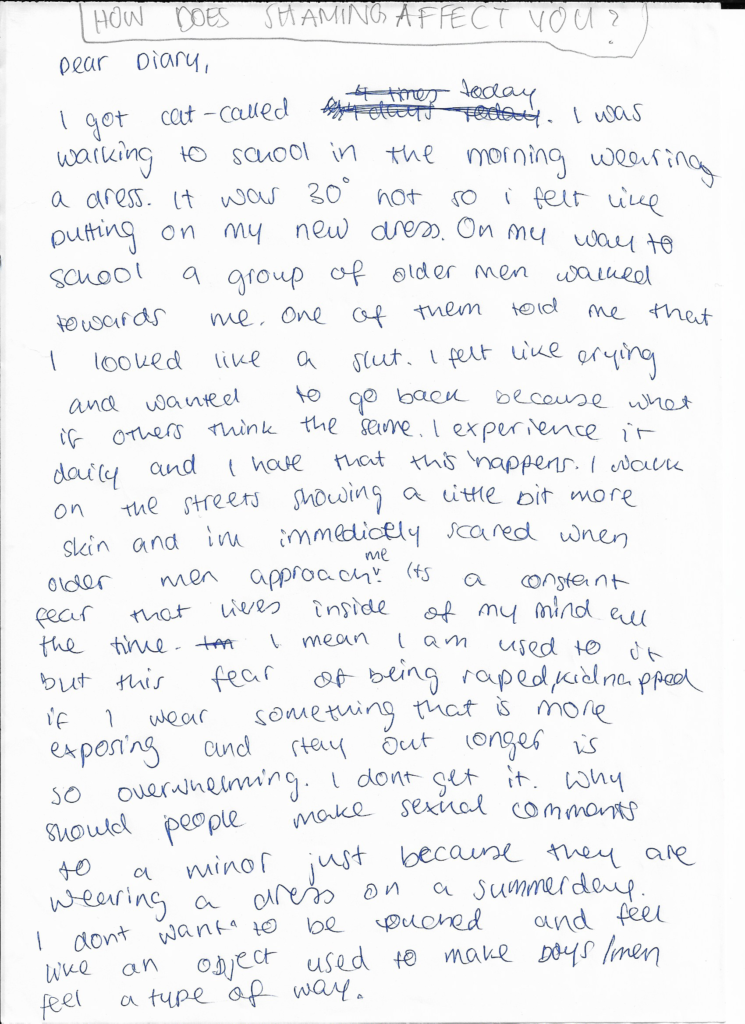 HOW DOES SHAMING AFFECT YOU?
Dear Diary,
4 times today
I got cat-called 4 days today. I was
walking to school in the morning wearing
a dress. It was 30° hot so i felt like
putting on my new dress. On my way to
school a group of older men walked
towards me. One of them told me that
I looked like a slut. I felt like crying
and wanted to go back because what
if others think the same. I experience it
daily and I hate that this happens. I walk
on the streets showing a little bit more
skin and im immediatly scared when
me
older men approach. Its a constant
fear that lives inside of my mind all
the time. I mean I am used to it
but this fear of being raped, kidnapped
if I wear something that is more
exposing and stay out longer is
so overwhelming. I dont get it. Why
should people make sexual comments
to a minor just because they are
wearing a dress on a summerday.
I dont want to be touched and feel
like an object used to make boys/men
feel a type of way.